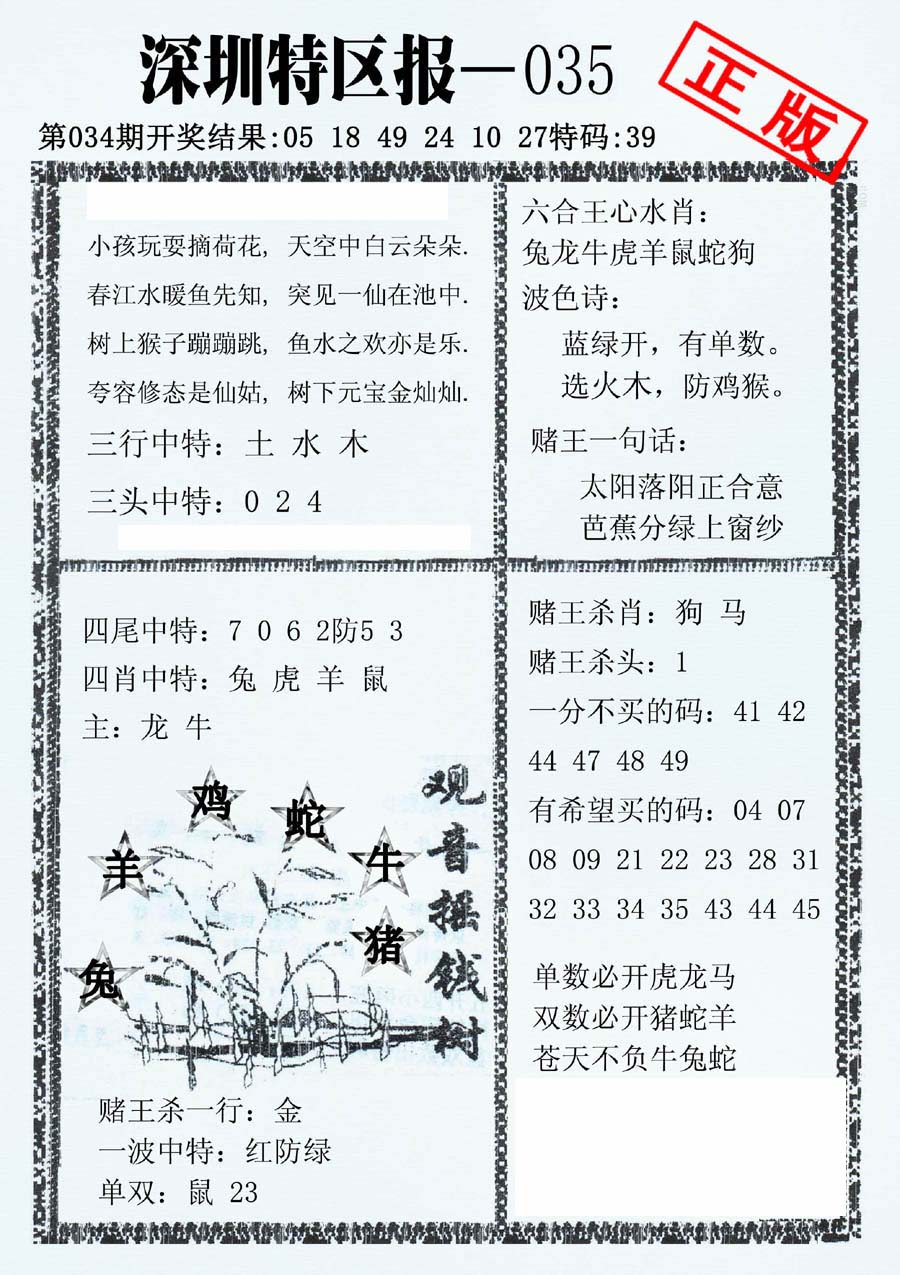 深圳特区报—035
正版
第034期开奖结果:05 18 49 24 10 27特码:39
小孩玩耍摘荷花, 天空中白云朵朵.
春江水暖鱼先知, 突见一仙在池中.
树上猴子蹦蹦跳, 鱼水之欢亦是乐.
夸容修态是仙姑, 树下元宝金灿灿.
三行中特: 土 水 木
三头中特: 0 2 4
六合王心水肖:
兔龙牛虎羊鼠蛇狗
波色诗:
蓝绿开，有单数。
选火木，防鸡猴。
赌王一句话:
太阳落阳正合意
芭蕉分绿上窗纱
四尾中特: 7 0 6 2防5 3
四肖中特: 兔 虎 羊 鼠
主: 龙 牛
鸡
蛇
羊
牛
猪
兔
观音摇钱树
赌王杀一行: 金
一波中特: 红防绿
单双: 鼠 23
赌王杀肖: 狗 马
赌王杀头: 1
一分不买的码: 41 42
44 47 48 49
有希望买的码: 04 07
08 09 21 22 23 28 31
32 33 34 35 43 44 45
单数必开虎龙马
双数必开猪蛇羊
苍天不负牛兔蛇